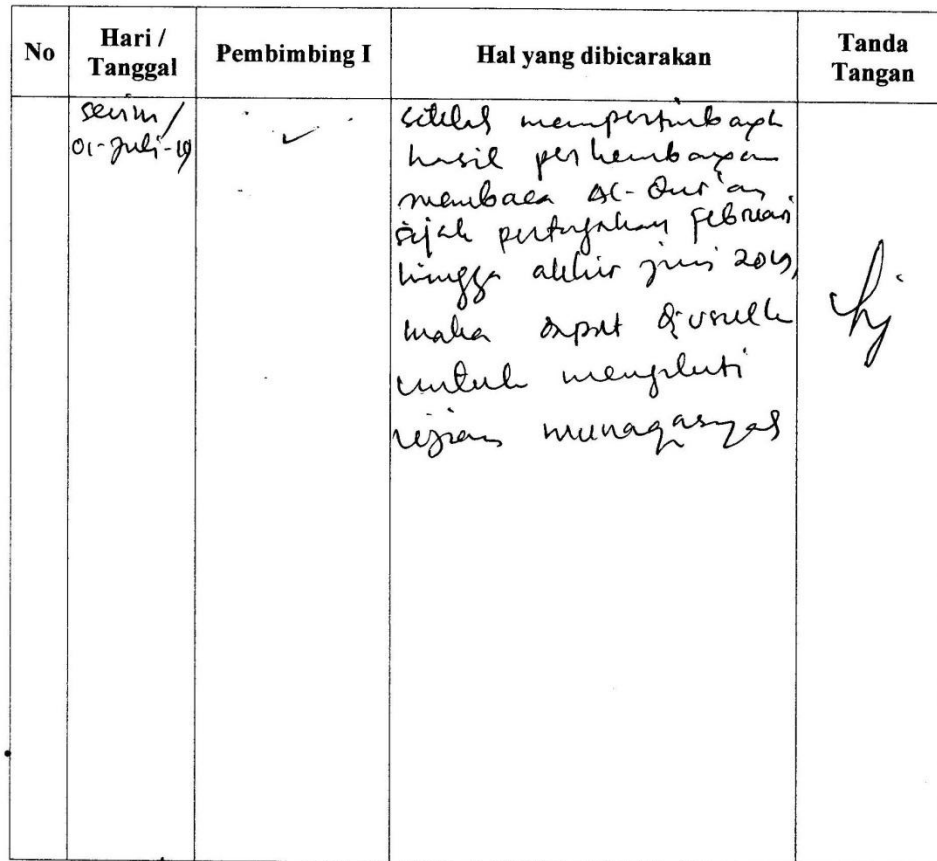 No
Hari /
Tanggal
Pembimbing I
Hal yang dibicarakan
Tanda
Tangan
Senin /
01-Juli-19
✓
setelah mempertimbangkan
hasil perkembangan
membaca Al-Qur'an
sejak pertengahan Februari
hingga akhir juni 2019,
maka dapat
untuk mengikuti
ujian munaqasyah